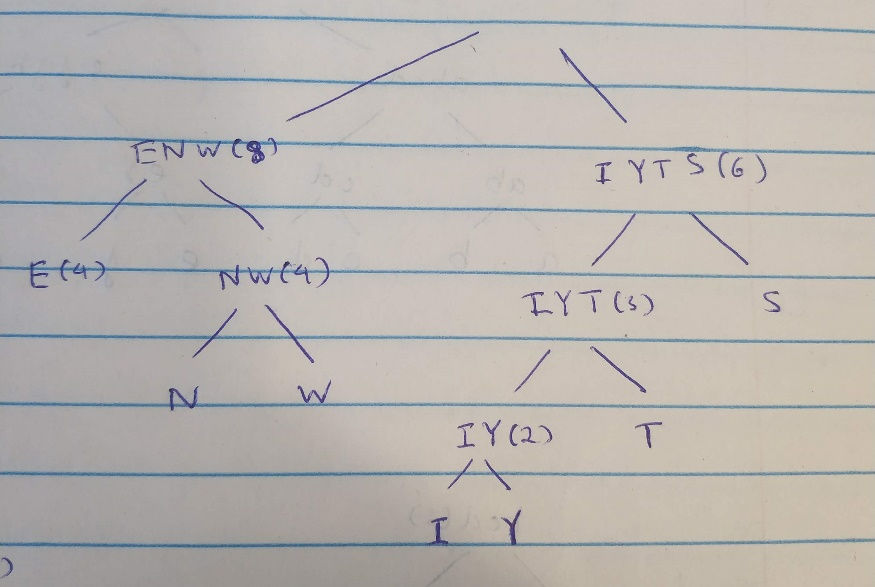 ENW(8)
IYTS(6)
E(4)
NW(4)
IYT(3)
S
N
W
IY(2)
T
I
Y
)